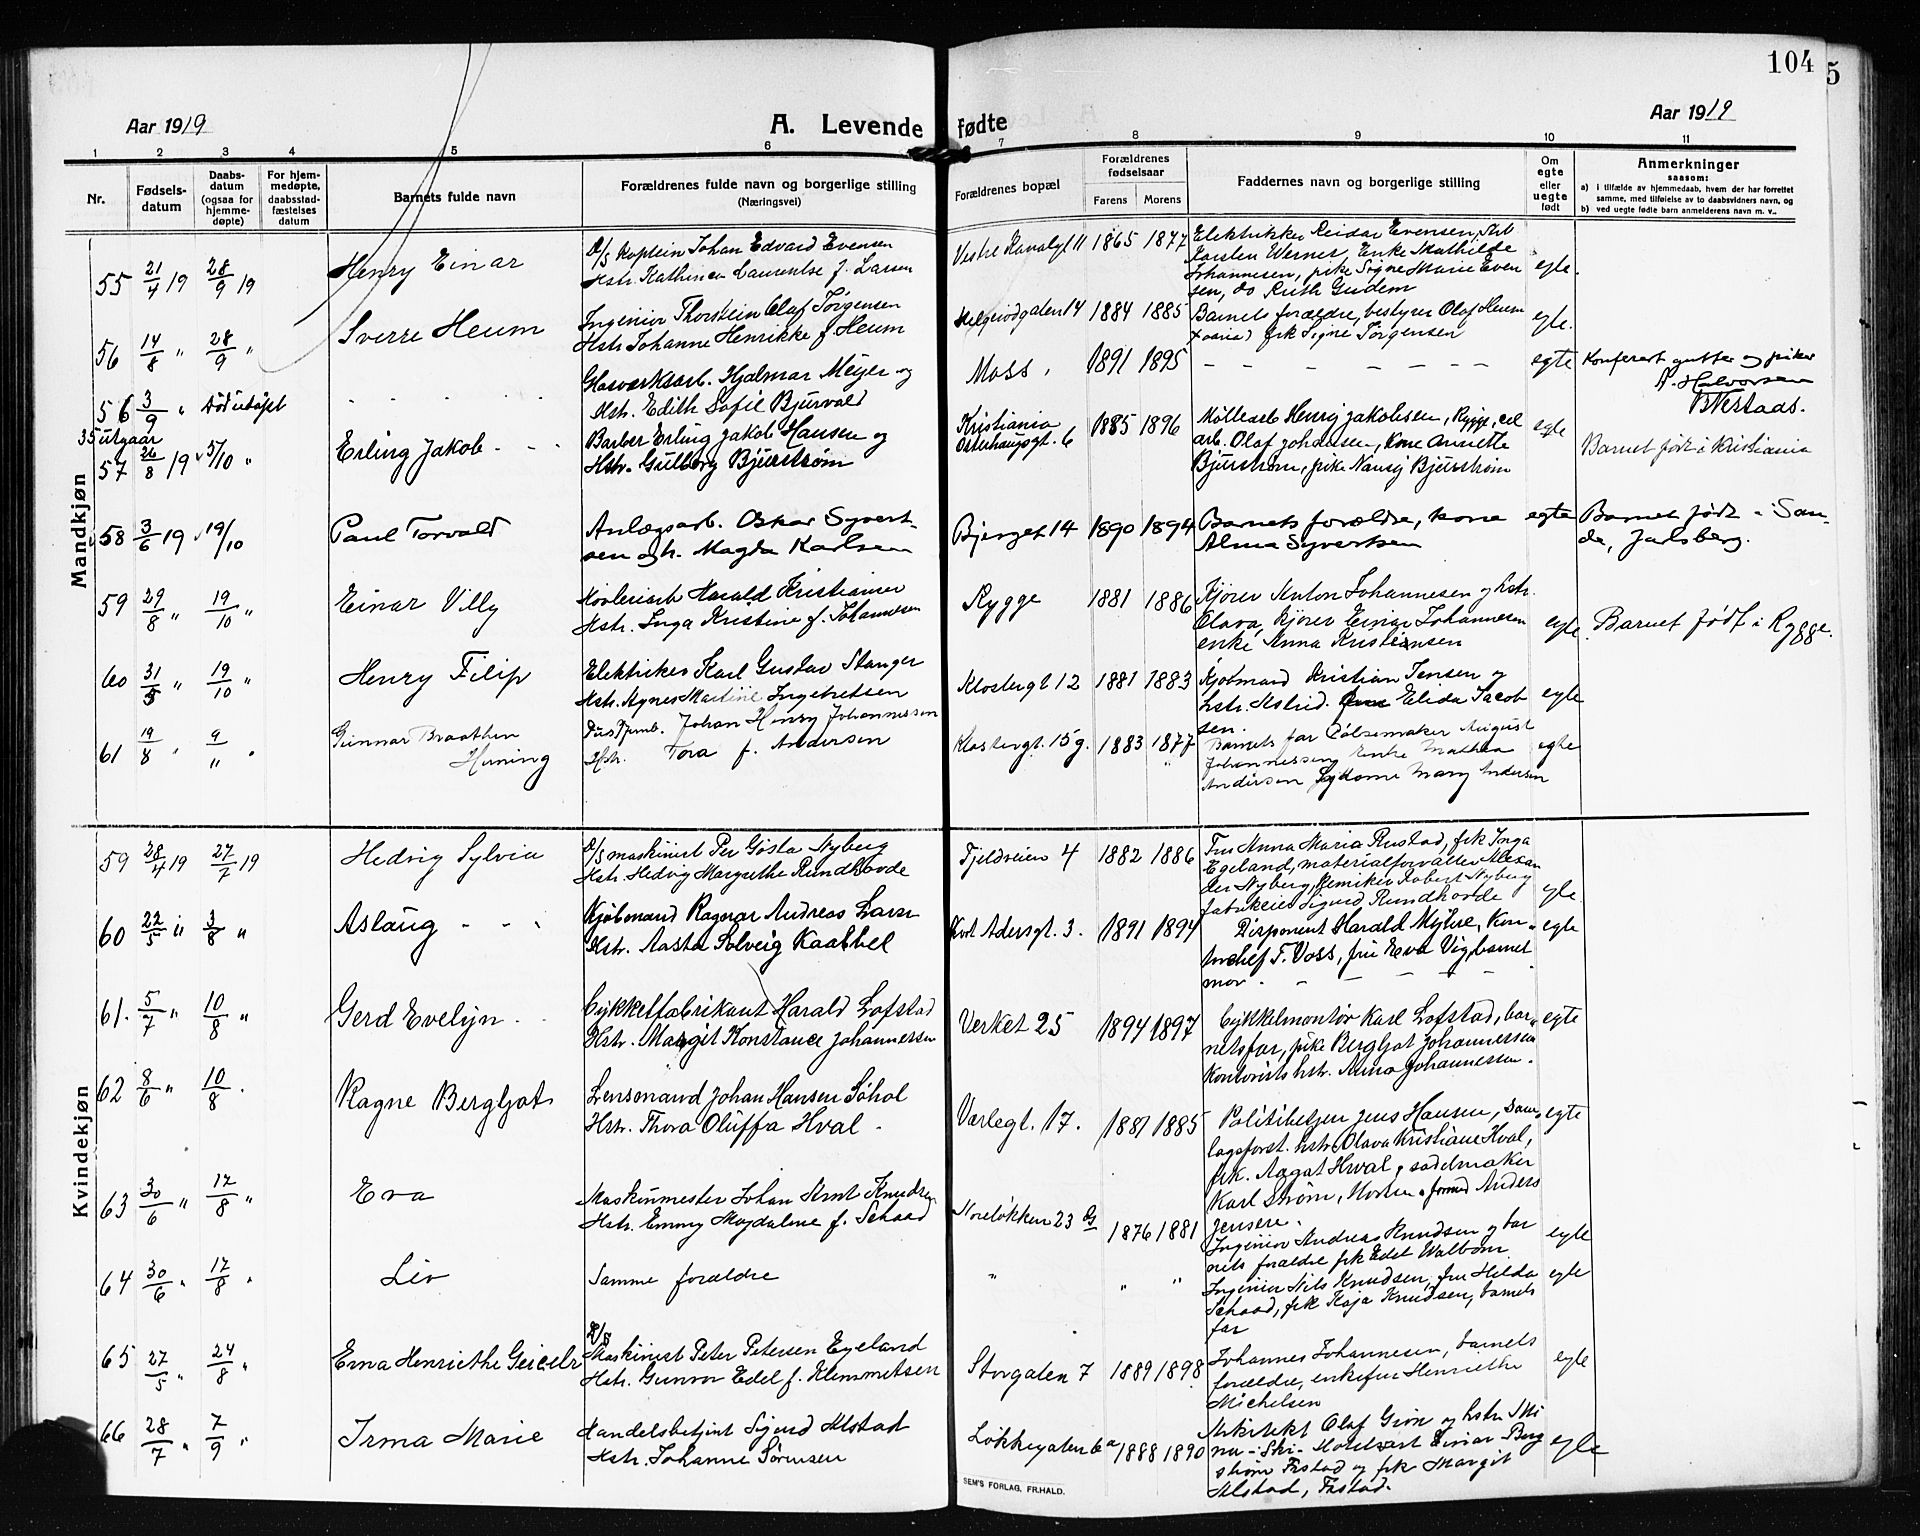 104
5
Aar 1919
A. Levende fødte
Aar 1919
1 2 3 4 5 6 7 8 9 10 11
Nr.
Fødsels-
datum
Daabs-
datum
(ogsaa for
hjemme-
døpte)
For hjem-
medøpte,
daabsstad-
fæstelses
datum
Barnets fulde navn
Forældrenes fulde navn og borgerlige stilling
(Næringsvei)
Forældrenes bopæl
Forældrenes
fødselsaar
Farens Morens
Faddernes navn og borgerlige stilling
Om
egte
eller
uegte
født
Anmerkninger
saasom:
a) i tilfælde av hjemmedaab, hvem der har forrettet
samme, med tilføielse av to daabsvidners navn, og
b) ved uegte fødte barn anmelderens navn m. v..
Mandkjøn
55 21/4 19 28/9 19 Henry Einar
D/S Kaptein Johan Edvard Evensen
Hstr. Kathinca Laurentse f. Larsen
Vestre Kanalgt 11 1865 1877
Elektrikker Reidar Evensen, Arb
Karsten Werner, Enke Mathilde
Johannesen, pike Signe Marie Even
sen, do Ruth Gudem
egte.
56 14/8 " 28/9 " Sverre Heum
Ingeniør Thorstein Olaf Jørgensen
Hstr Johanne Henrikke f Heum
Helgerødgaten 14 1884 1885
Barnets forældre, bestyrer Olaf Heum
frk Signe Jørgensen
egte.
56 3/9 " Død udøpt
Glasverksarb. Hjalmar Meyer og
Hstr. Edith Sofie Bjurvald
Moss, 1891 1895 - - - - - - egte
Konferert gutter og piker
A. Halvorsen
B Nestaas.
35 utgaar
57 26/8 19 5/10 " Erling Jakob
Barber Erling Jakob Hansen og
Hstr. Gulborg Bjurstrøm
Kristiania
Osterhausgt. 6 1885 1896
Møllearb Henrij Jakobsen, Rygge,
arb. Olaf Johansen, Kone Annette
Bjurstrøm, pike Nansij Bjurstrøm
egte
Barnet født i Kristiania
58 3/6 19 19/10 Paul Torvald
Anlægsarb. Oskar Syvert-
sen og h. Magda Karlsen
Bjerget 14 1890 1894
Barnets forældre, kone
Alma Syvertsen
egte
Barnet født i San-
de, Jarlsberg.
59 29/8 " 19/10 " Einar Villy
Høvleriarb Harald Kristiansen
Hstr. Inga Kristine f. Johannesen
Rygge 1881 1886
Kjører Anton Johannesen og hstr.
Olava, Kjører Einar Johannesen
enke Anna Kristiansen
egte.
Barnet født i Rygge.
60 31/5 " 19/10 " Henry Filip
Elektriker Karl Gustav Stanger
Hstr. Agnes Martine Ingebretsen
Klostergt 12 1881 1883
Kjøbmand Kristian Jensen og
hstr. Astrid. Elida Jacob
sen.
egte
61 19/8 " 9/" " Gunnar Braathen
Henning
Johan Henry Johannessen
Hstr. Tora f. Andersen
Klostergt. 15 g. 1883 1877
Barnets far Pølsemaker August
Johannessen Enke Mathea
Andersen Mary Andersen
egte
Kvindekjøn
59 28/4 19 27/7 19 Hedvig Sylvia
D/S maskinist Per Gösta Nyberg
Hstr. Hedvig Margrethe Rundhovde
Fjeldveien 4 1882 1886
Fru Anna Maria Rustad, frk Inga
Egeland, materialforvalter Alexan
der Nyberg, Kemiker Robert Nyberg
fabrikeier Sigurd Rundhovde
egte.
60 22/5 " 3/8 " Aslaug - -
Kjøbmand Ragnar Andreas Larn
Hstr. Aasta Solveig Kaabbel
Kort Adersgt. 3. 1891 1894
Disponent Harald Myhre, Kon-
torchef F. Voss, fru Eva Vig, barnet
mor. - - - -
egte
61. 5/7 " 10/8 " Gerd Evelyn
Cykkelfabrikant Harald Lofstad
Hstr. Margit Konstance Johannessen
Verket 25 1894 1897
Cykkelmontør Karl Lofstad, bar-
nets far, pike Bergljot Johannessen
Kontorist hstr. Anna Johannessen.
egte
62 8/6 " 10/8 . Ragne Bergljot
Lensmand Johan Hansen Søhol
Hstr. Thora Oluffa Hval
Varlegt. 17. 1881 1885
Politibetjen Jens Hansen, Dam-
lagsforst. hstr. Olava Kristiane Hval,
frk. Aagat Hval, sadelmaker
Karl Strøm, Anders
Jensen.
egte
63 30/6 " 17/8 " Eva
Maskinmester Johan Arnt Knudsen
Hstr. Emmy Magdalene f. Schaad
Noreløkken 23 B 1876 1881
Ingeniør Andreas Knudsen og bar
nets forældre frk Edel Walbom
egte
64 30/6 " 17/8 " Liv
Samme forældre
" " "
Ingeniør Nils Knudsen, fru Hilda
Schaad, frk Kaja Knudsen, barnets
far
egte
65 27/5 " 24/8 " Erna Henriethe
D/S
Maskinist Peter Petersen Egeland
Hstr. Gunvor Edel f. Klemmetsen
Storgaten 7 1889 1898
Johannes Johannesen, barnets
forældre, enkefru Henriethe
Michelsen
egte
66 28/7 " 7/9 " Irma Marie
Handelsbetjent Sigurd Alstad
Hstr. Johanne Sørensen
Løkkegaten 6a 1888 1890
Arkitekt Olaf Grøn og hstr. Mi
na - Ski - Hotelvært Einar Berg
strøm Fistad og frk Margit
Alstad, Fistad.
egte
SEM'S FORLAG, FR.HALD.